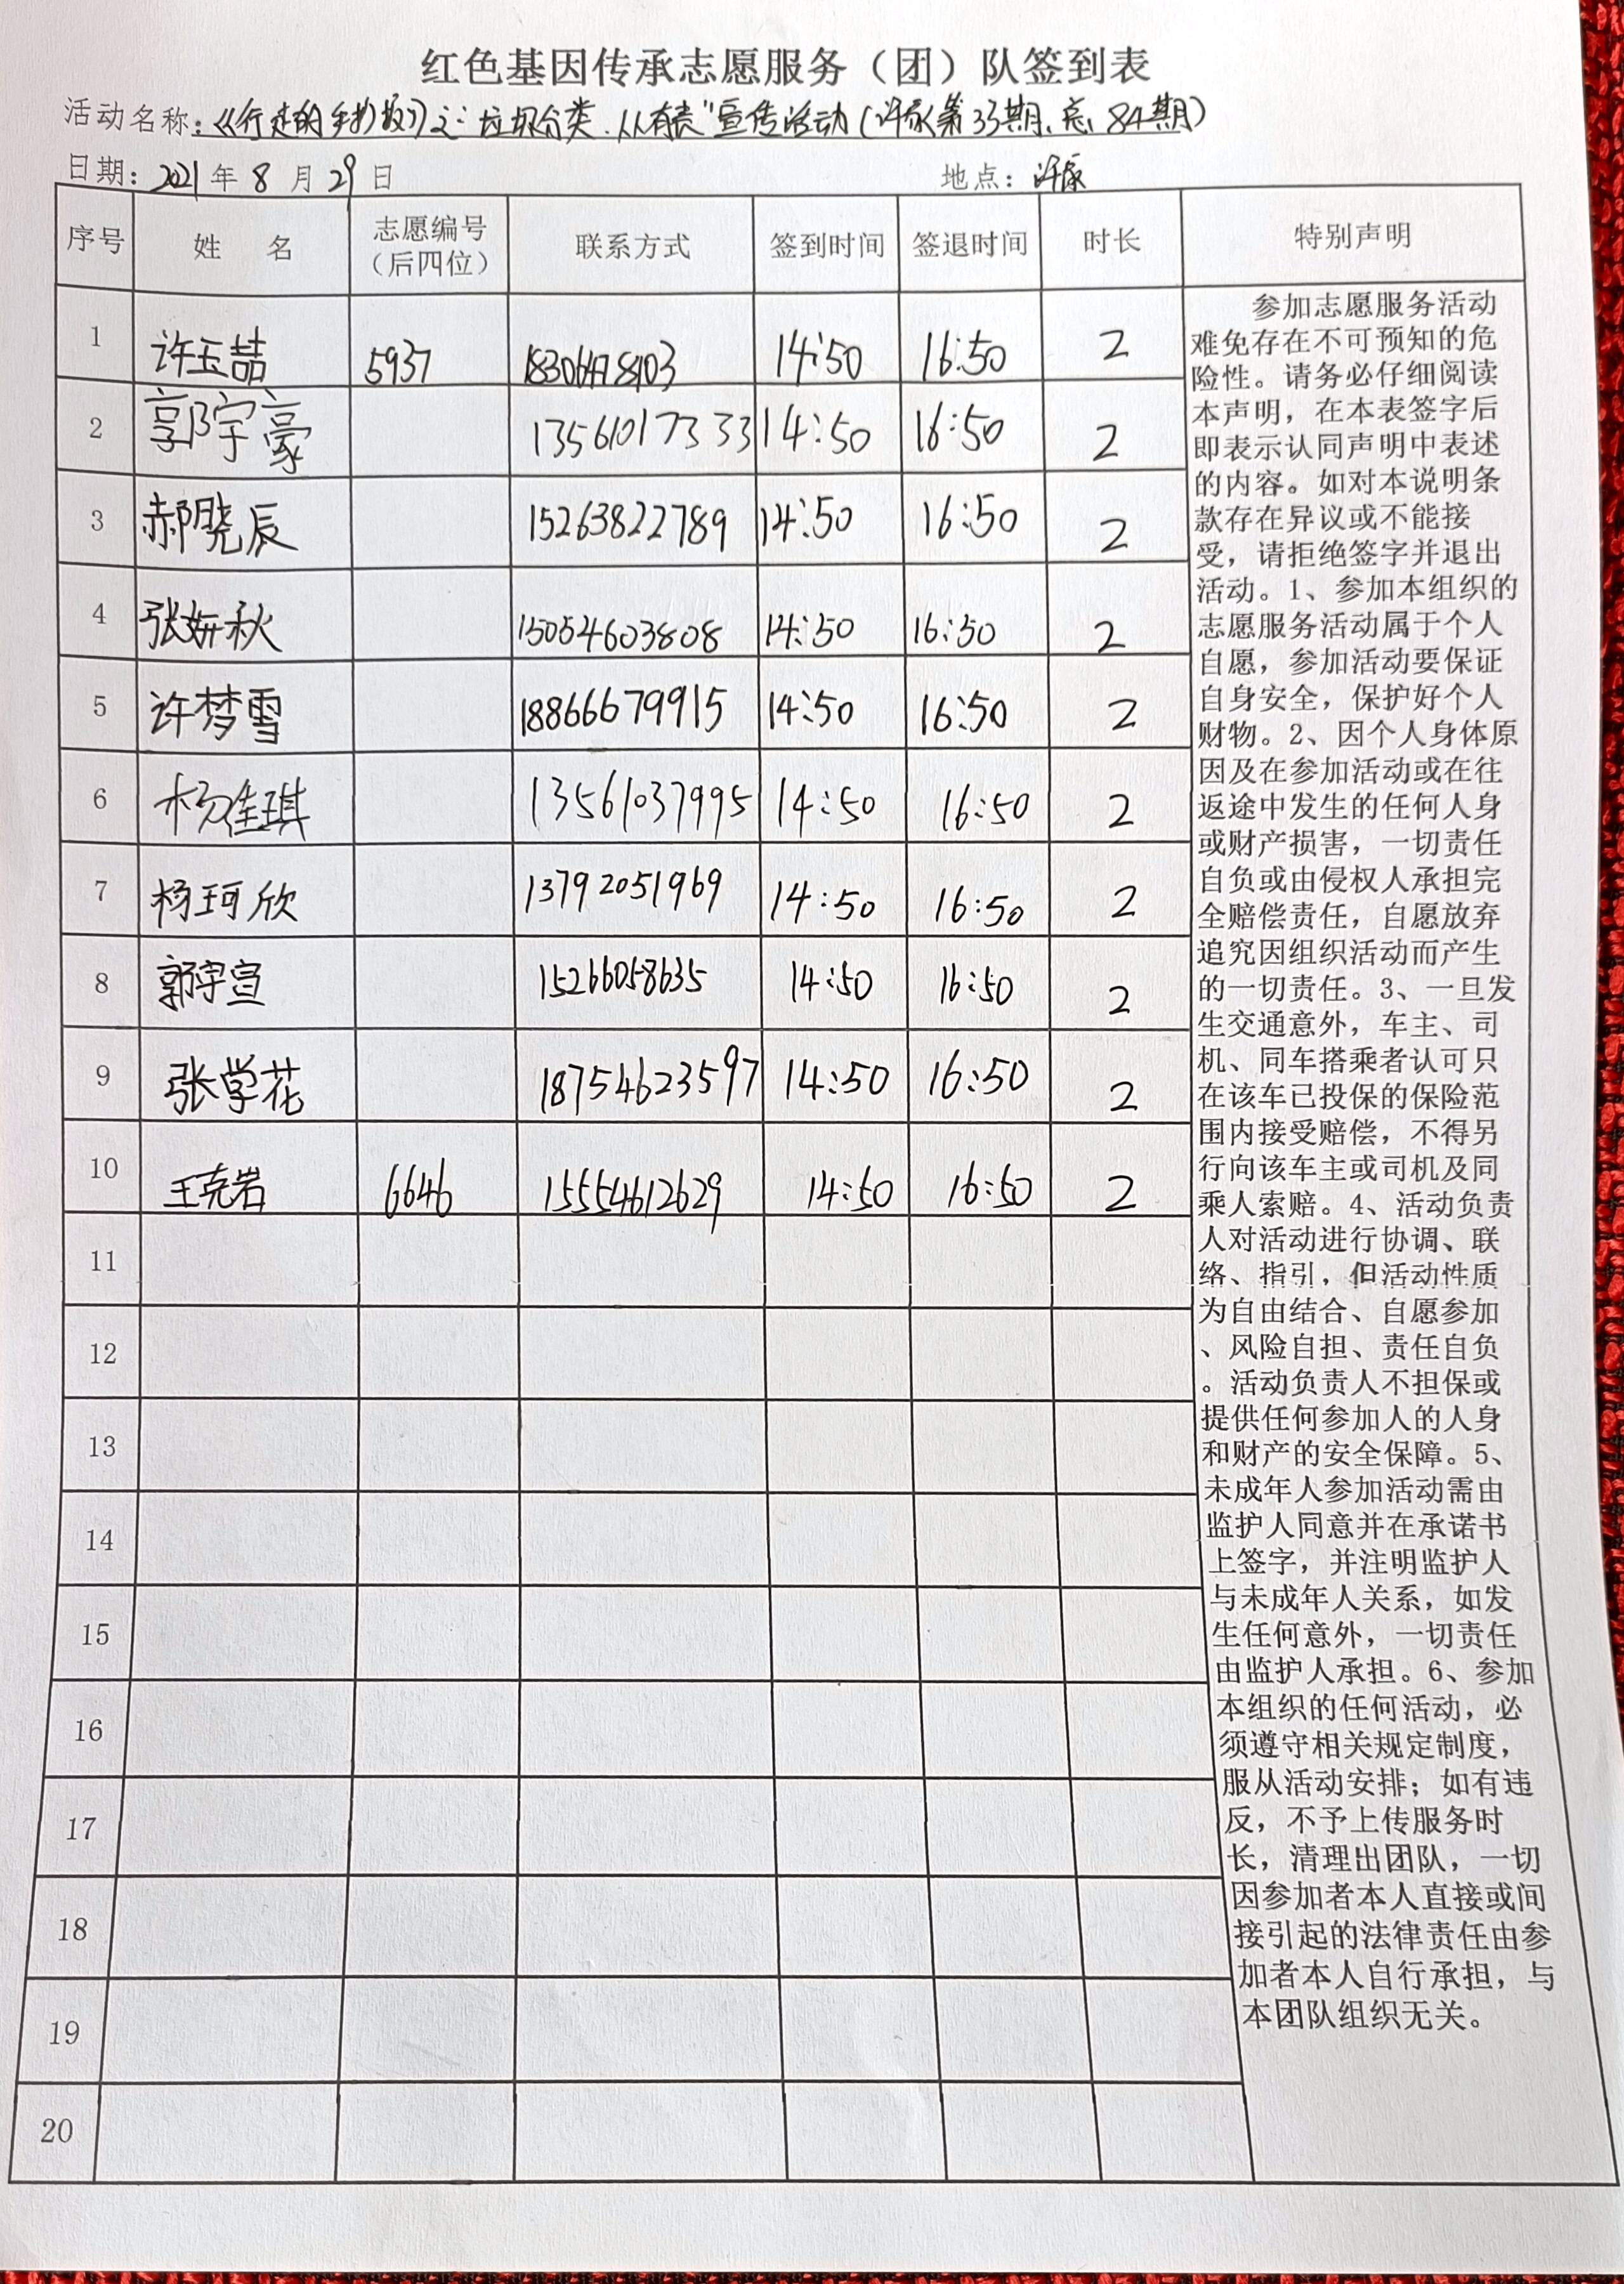 红色基因传承志愿服务（团）队签到表
活动名称：《行走的手抄报》之"垃圾分类，人人有责"宣传活动（许家第33期、总84期）
日期：2021年8月29日 地点：许家
序号 姓 名 志愿编号（后四位） 联系方式 签到时间 签退时间 时长 特别声明
1 许玉喆 5937 18306478403 14:50 16:50 2
2 郭宇豪 13561017333 14:50 16:50 2
3 郝晓辰 15263822789 14:50 16:50 2
4 张妍秋 15054603808 14:50 16:50 2
5 许梦雪 18866679915 14:50 16:50 2
6 杨佳琪 13561037995 14:50 16:50 2
7 杨珂欣 13792051969 14:50 16:50 2
8 郭宇宣 15266058635 14:50 16:50 2
9 张学花 18754623597 14:50 16:50 2
10 王尧岩 6646 15554612629 14:50 16:50 2
11
12
13
14
15
16
17
18
19
20
参加志愿服务活动
难免存在不可预知的危
险性。请务必仔细阅读
本声明，在本表签字后
即表示认同声明中表述
的内容。如对本说明条
款存在异议或不能接
受，请拒绝签字并退出
活动。1、参加本组织的
志愿服务活动属于个人
自愿，参加活动要保证
自身安全，保护好个人
财物。2、因个人身体原
因及在参加活动或在往
返途中发生的任何人身
或财产损害，一切责任
自负或由侵权人承担完
全赔偿责任，自愿放弃
追究因组织活动而产生
的一切责任。3、一旦发
生交通意外，车主、司
机、同车搭乘者认可只
在该车已投保的保险范
围内接受赔偿，不得另
行向该车主或司机及同
乘人索赔。4、活动负责
人对活动进行协调、联
络、指引，但活动性质
为自由结合、自愿参加
、风险自担、责任自负
。活动负责人不担保或
提供任何参加人的人身
和财产的安全保障。5、
未成年人参加活动需由
监护人同意并在承诺书
上签字，并注明监护人
与未成年人关系，如发
生任何意外，一切责任
由监护人承担。6、参加
本组织的任何活动，必
须遵守相关规定制度，
服从活动安排；如有违
反，不予上传服务时
长，清理出团队，一切
因参加者本人直接或间
接引起的法律责任由参
加者本人自行承担，与
本团队组织无关。